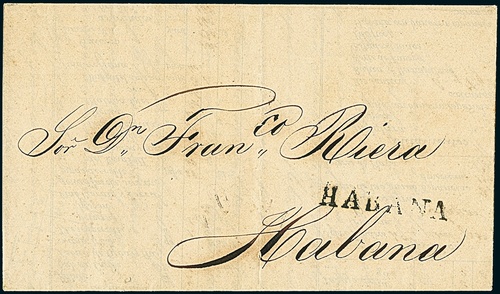 Sor Dn Franco Riera
HABANA
Habana